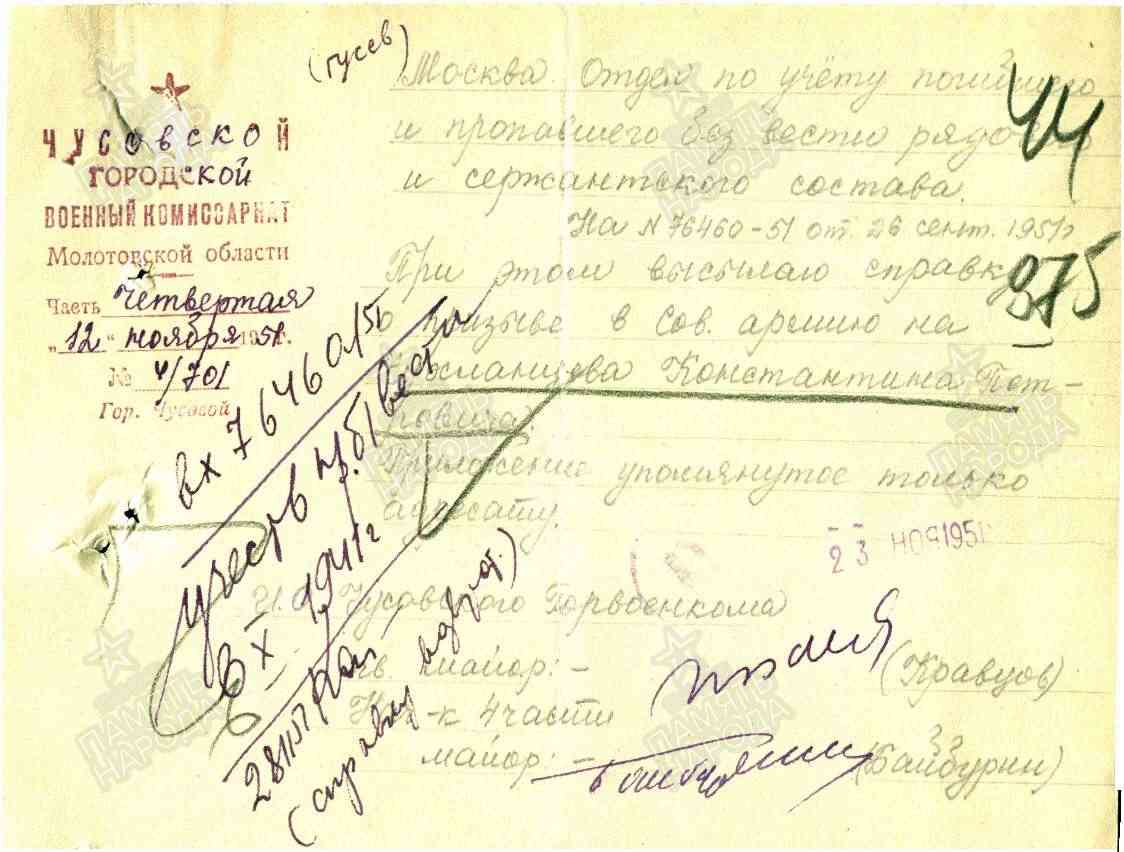 (Гусев)
ЧУСОВСКОЙ
ГОРОДСКОЙ
ВОЕННЫЙ КОМИССАРИАТ
Молотовской области
Часть Четвертая
„12“ ноября 1951г.
№ 4/701
Гор. Чусовой
Москва. Отдел по учёту погибшего
и пропавшего без вести рядо
и сержантского состава.
На N 76460-51 от 26 сент. 1951г
44
При этом высылаю справку
975
о призыве в Сов. армию на
Константина Пет-
ровича.
Приложение упомянутое только
адресату.
вх 76460/51
учесть б/вести
в X 1941г
28
(справку
23 НОЯ 1951
И.О. Чусовского Горвоенкома
гв. майор: - (Кравцов)
Нач-к 4 части
майор: - (Байбурин)
33
ПАМЯТЬ НАРОДА